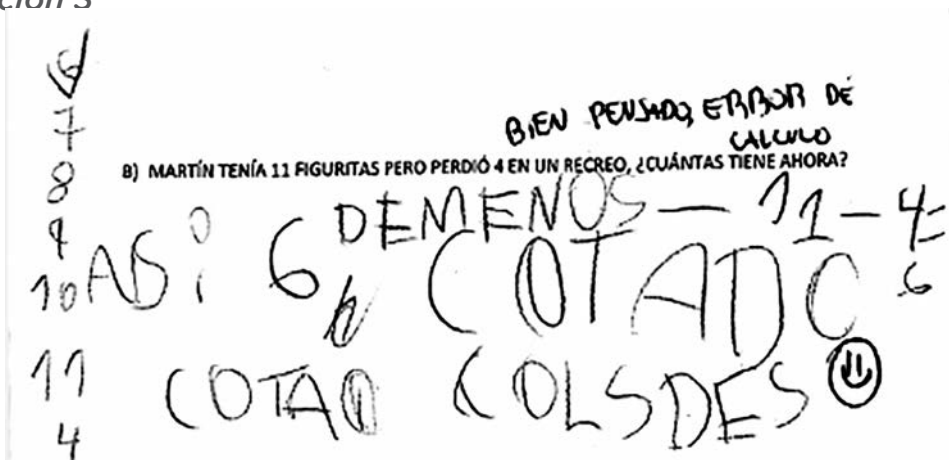 ción 3
BIEN PENSADO, ERROR DE
CALCULO
B) MARTÍN TENÍA 11 FIGURITAS PERO PERDIÓ 4 EN UN RECREO, ¿CUÁNTAS TIENE AHORA?
6
7
8
9
10
11
4
DEMENOS — 11-4=
6
ASi 6 COTADO
COTAO COLSDES